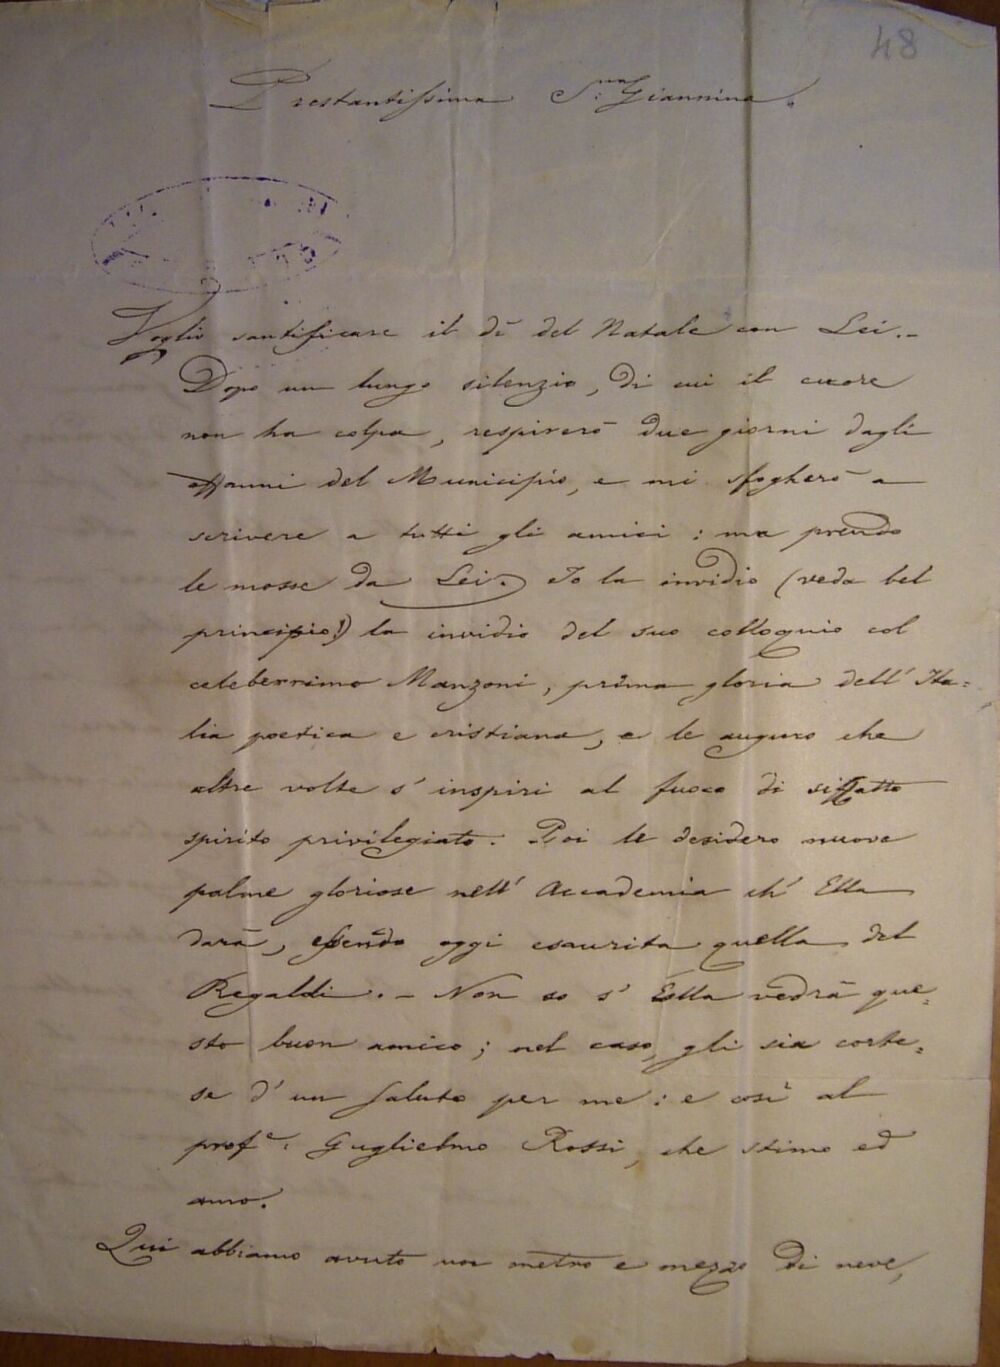 48
Prestantissima S.na Giannina.
Voglio santificare il dì del Natale con Lei. -
Dopo un lungo silenzio, di cui il cuore
non ha colpa, respirerò due giorni dagli
affanni del Municipio, e mi sfogherò a
scrivere a tutti gli amici: ma prendo
le mosse da Lei. Io la invidio (veda bel
principio!) la invidio del suo colloquio col
celeberrimo Manzoni, prima gloria dell'Ita=
lia poetica e cristiana, e le auguro che
altre volte s'inspiri al fuoco di siffatto
spirito privilegiato. Poi le desidero nuove
palme gloriose nell'Accademia ch'Ella
darà, essendo oggi esaurita quella del
Regaldi. - Non so s'Ella vedrà que=
sto buon amico; nel caso, gli sia corte=
se d'un saluto per me: e così al
prof.e Guglielmo Rossi, che stimo ed
amo.
Qui abbiamo avuto un metro e mezzo di neve,